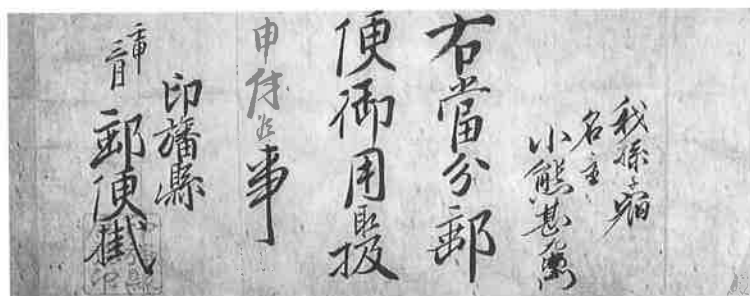 我孫子宿
名主
小熊甚
右當分郵
便御用取扱
申付候事
印旛縣
壬申
三月
郵便掛